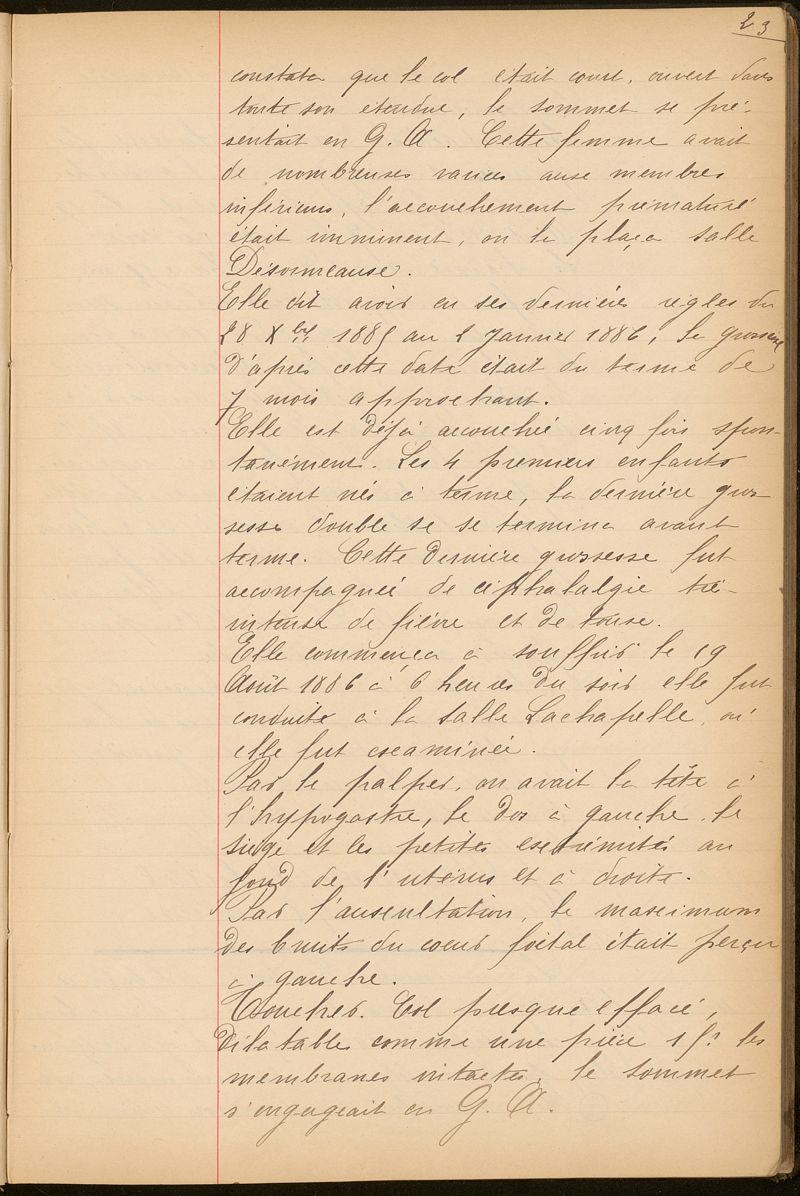 23
constata que le col était court, ouvert dans
toute son étendue, le sommet se pré-
sentait en G. A. Cette femme avait
de nombreuses varices aux membres
inférieurs, l'accouchement prématuré
était imminent, on la plaça salle
Désormeause.
Elle dit avoir eu ses dernières règles du
28 Xbre 1885 au 2 Janvier 1886, la grossesse
d'après cette date était du terme de
7 mois approchant.
Elle est déjà accouchée cinq fois spon-
tanément. Les 4 premiers enfants
étaient nés à terme, la dernière gros-
sesse double se se termina avant
terme. Cette dernière grossesse fut
accompagnée de céphalalgie très
intense de fièvre et de touse.
Elle commença à souffrir le 19
Août 1886 à 6 heures du soir elle fut
conduite à la salle Lachapelle, où
elle fut examinée.
Par le palper, on avait la tête à
l'hypogastre, le dos à gauche, le
siège et les petites extrémités au
fond de l'utérus et à droite.
Par l'auscultation, le maximum
des bruits du coeur foetal était perçu
à gauche.
Toucher. Col presque effacé,
dilatable comme une pièce 1 f. les
membranes intactes, le sommet
s'engageait en G. A.